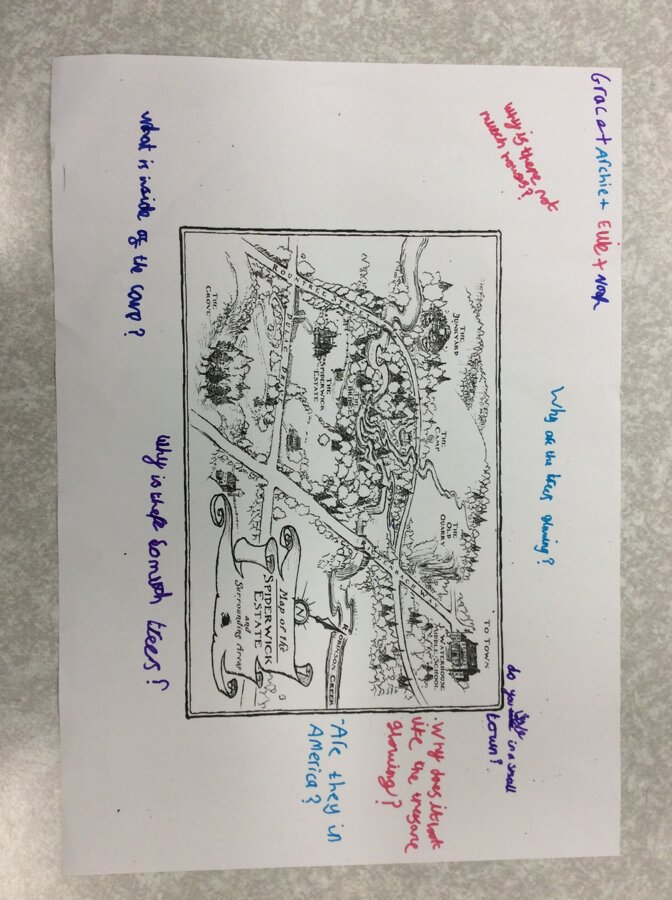 Grace + Archie + Evie + Noah
why is there not
much
Why are the trees glowing?
do you live in a small
town?
THE
JUNKYARD
THE
CAMP
THE
OLD
QUARRY
TO TOWN
WATERHOUSE
MIDDLE SCHOOL
THE
SPIDERWICK
ESTATE
THE
GROVE
N
ROBINSON CREEK
Map of the
SPIDERWICK
ESTATE
and
Surrounding Area
·Why does it look
like the tresare
glowing?
-Are they in
America?
what is inside of the cave?
why is there somuch trees?